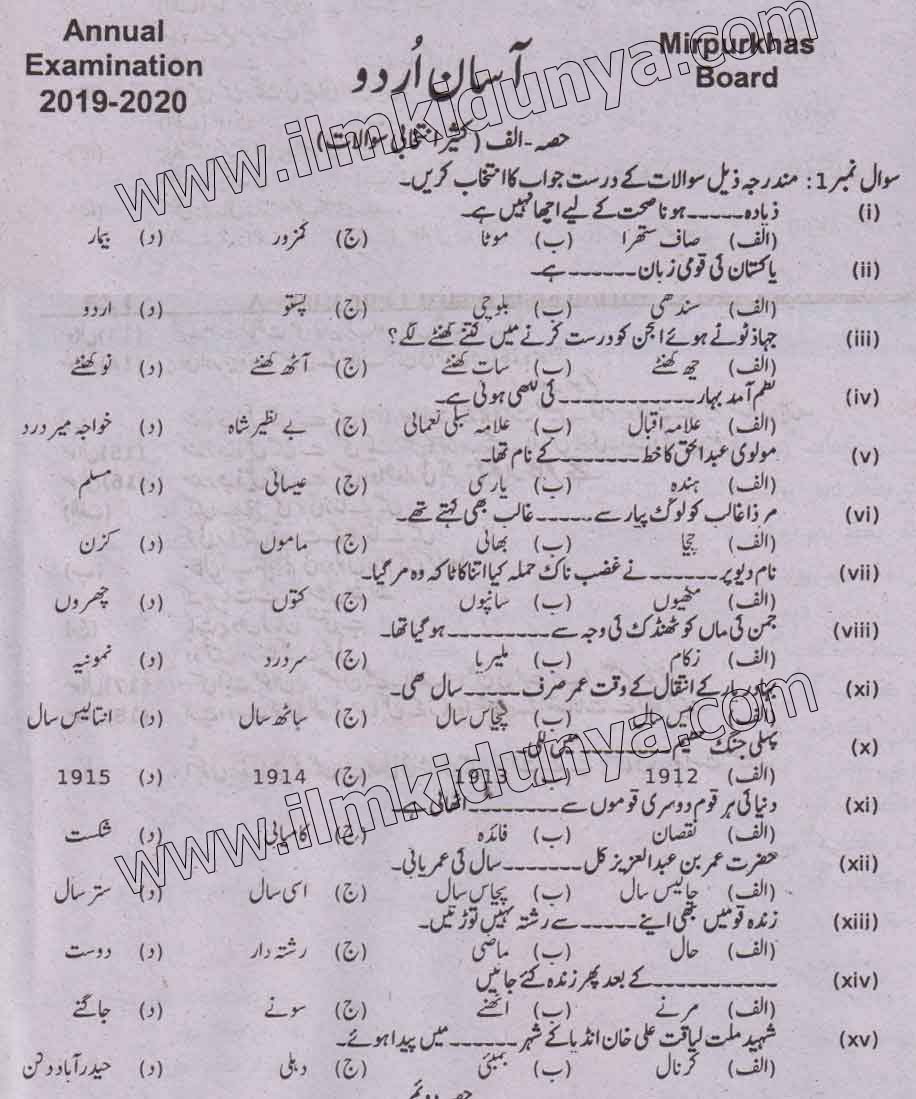 Annual
Examination
2019-2020
آسان اُردو
Mirpurkhas
Board
حصہ-الف (کثیر انتخابی سوالات)
سوال نمبر 1: مندرجہ ذیل سوالات کے درست جواب کا انتخاب کریں۔
(i) زیادہ۔۔۔۔۔ہونا صحت کے لیے اچھا نہیں ہے۔
(الف) صاف ستھرا (ب) موٹا (ج) کمزور (د) بیمار
(ii) پاکستان کی قومی زبان۔۔۔۔۔۔ ہے۔
(الف) سندھی (ب) بلوچی (ج) پشتو (د) اردو
(iii) جہاز ٹوٹے ہوئے انجن کو درست کرنے میں کتنے گھنٹے لگے؟
(الف) چھ گھنٹے (ب) سات گھنٹے (ج) آٹھ گھنٹے (د) نو گھنٹے
(iv) نظم آمد بہار۔۔۔۔۔۔۔۔۔۔۔ کی لکھی ہوئی ہے۔
(الف) علامہ اقبال (ب) علامہ شبلی نعمانی (ج) بے نظیر شاہ (د) خواجہ میر درد
(v) مولوی عبدالحق کا خط۔۔۔۔۔۔۔۔ کے نام تھا۔
(الف) ہندہ (ب) پارسی (ج) عیسائی (د) مسلم
(vi) مرزا غالب کو لوگ پیار سے۔۔۔۔۔۔غالب بھی کہتے تھے۔
(الف) چچا (ب) بھائی (ج) ماموں (د) کزن
(vii) نام دیو پر۔۔۔۔۔۔۔ نے غضب ناک حملہ کیا اتنا کاٹا کہ وہ مر گیا۔
(الف) مکھیوں (ب) سانپوں (ج) کتوں (د) چھروں
(viii) جمن کی ماں کو ٹھنڈک کی وجہ سے۔۔۔۔۔۔۔۔۔ہو گیا تھا۔
(الف) زکام (ب) ملیریا (ج) سر درد (د) نمونیہ
(xi) بہادر یار کے انتقال کے وقت عمر صرف۔۔۔۔۔سال تھی۔
(الف) تیس سال (ب) پچاس سال (ج) ساٹھ سال (د) انتالیس سال
(x) پہلی جنگ عظیم۔۔۔۔۔۔۔۔۔
(الف) 1912 (ب) 1913 (ج) 1914 (د) 1915
(xi) دنیا کی ہر قوم دوسری قوموں سے۔۔۔۔۔۔۔۔اٹھاتی ہے۔
(الف) نقصان (ب) فائدہ (ج) کامیابی (د) شکست
(xii) حضرت عمر بن عبدالعزیز کل۔۔۔۔۔۔۔سال کی عمر پائی۔
(الف) چالیس سال (ب) پچاس سال (ج) اسی سال (د) ستر سال
(xiii) زندہ قومیں کبھی اپنے۔۔۔۔۔سے رشتہ نہیں توڑتیں۔
(الف) حال (ب) ماضی (ج) رشتہ دار (د) دوست
(xiv) ۔۔۔۔۔۔۔۔۔۔۔۔کے بعد پھر زندہ کئے جائیں
(الف) مرنے (ب) اٹھنے (ج) سونے (د) جاگنے
(xv) شہید ملت لیاقت علی خان انڈیا کے شہر۔۔۔۔۔۔میں پیدا ہوئے۔
(الف) کرنال (ب) بمبئی (ج) دہلی (د) حیدرآباد دکن
www.ilmkidunya.com
www.ilmkidunya.com